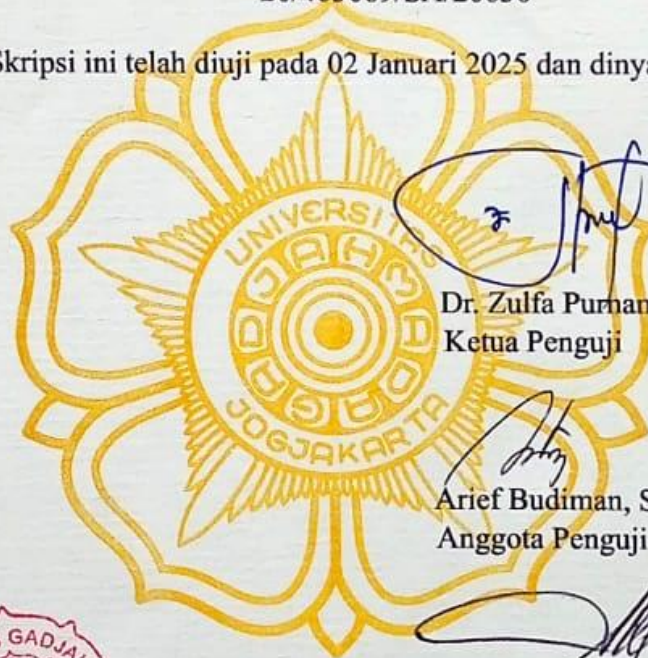 Skripsi ini telah diuji pada 02 Januari 2025 dan dinya
UNIVERSITAS
GADJAH MADA
JOGJAKARTA
Dr. Zulfa Purnan
Ketua Penguji
Arief Budiman, S
Anggota Penguji
GADJA